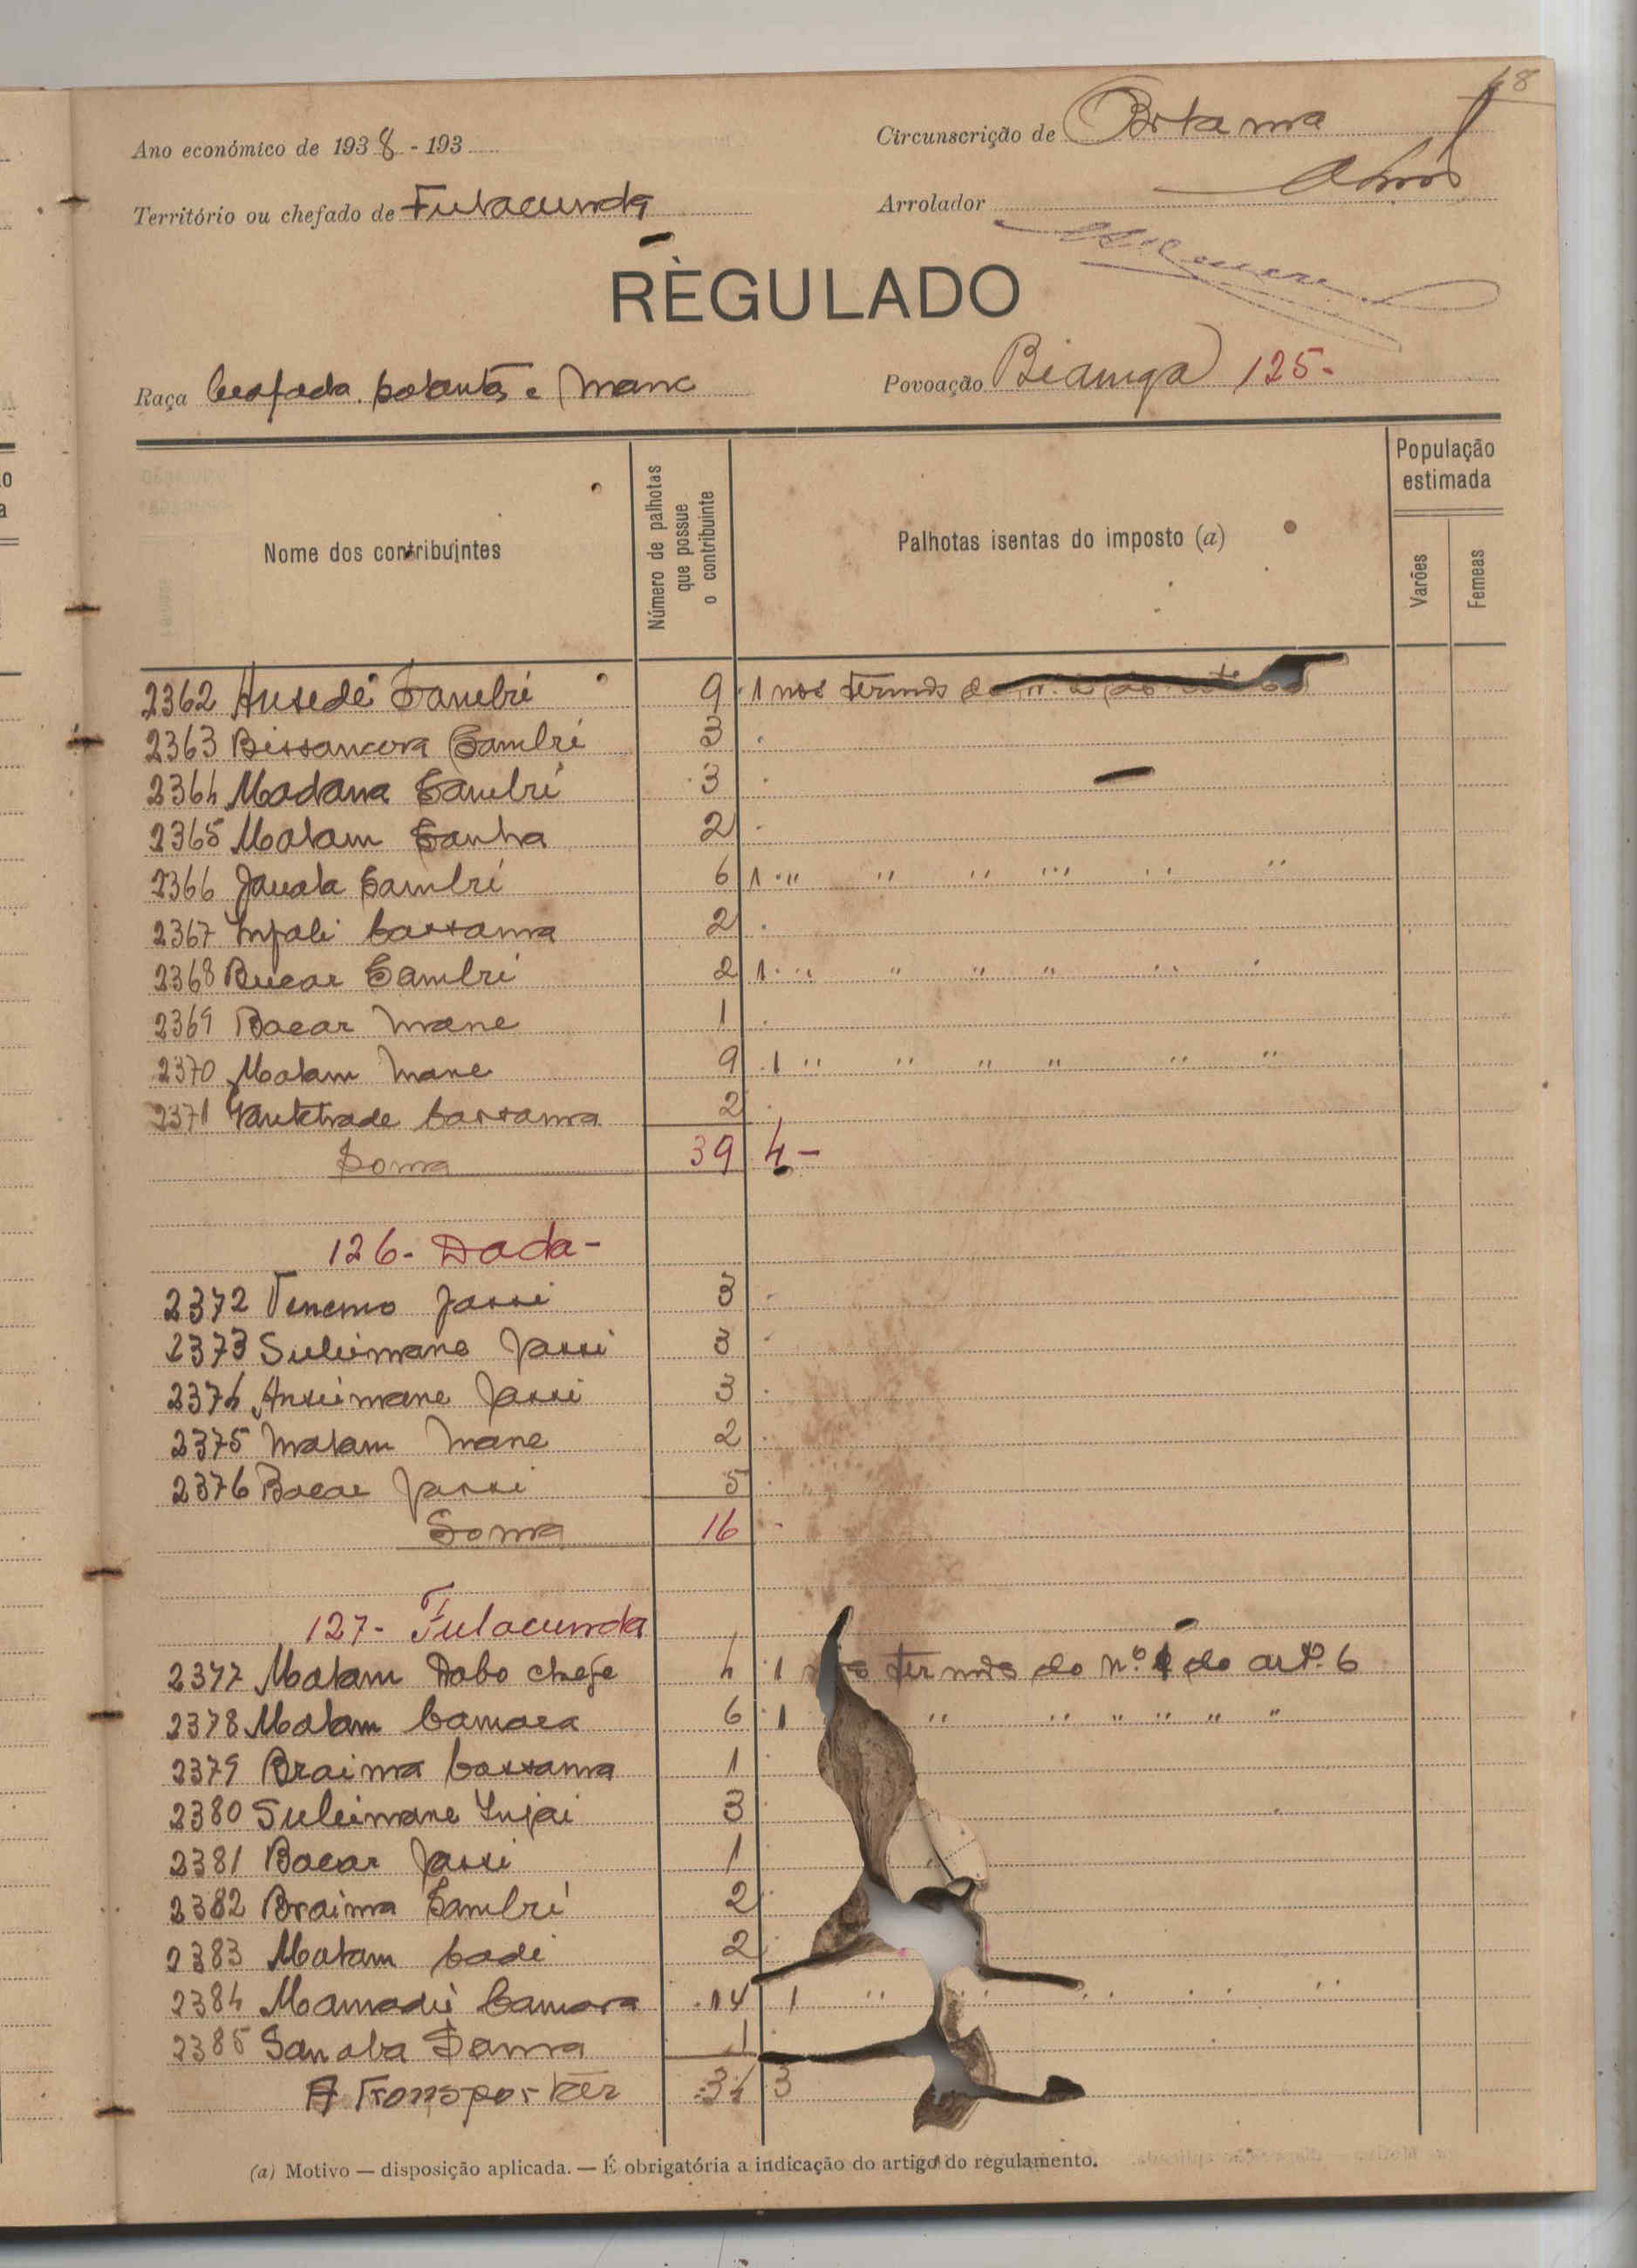 68
Ano económico de 1938 - 193
Circunscrição de Bolama
Território ou chefado de Fulacunda
Arrolador
RÈGULADO
Raça beafada. balantas e Manc
Povoação Bianga 125-
Nome dos contribuintes
Número de palhotas que possue o contribuinte
Palhotas isentas do imposto (a)
População estimada
Varões
Femeas
2362 Ansede Sambri 9 1 nos termos do
2363 Sambri 3
2364 Madana Sambri 3
2365 Malam Sanha 2
2366 Sambri 6 1 " " " " " "
2367 Infali Cassama 2
2368 Bucar Sambri 2 1 " " " " " "
2369 Bacar Mane 1
2370 Malam Mane 9 1 " " " " " "
2371 Cassama 2
Soma 39 4-
126- Dada-
2372 Venemo Jassi 3
2373 Suleimane Jassi 3
2374 Ansumane Jassi 3
2375 Malam Mane 2
2376 Bacar Jassi 5
Soma 16
127- Fulacunda
2377 Malam Dabo chefe 4 1 termos do nº do artº. 6
2378 Malam Camara 6 1 " " " " " "
2379 Braima Cassama 1
2380 Suleimane Injai 3
2381 Bacar Jassi 1
2382 Braima Sambri 2
2383 Malam Cadi 2
2384 Mamadú Camara 14 1 " " " " "
2385 Sanaba Sama 1
A Transportar 34 3
(a) Motivo — disposição aplicada. — É obrigatória a indicação do artigo do regulamento.